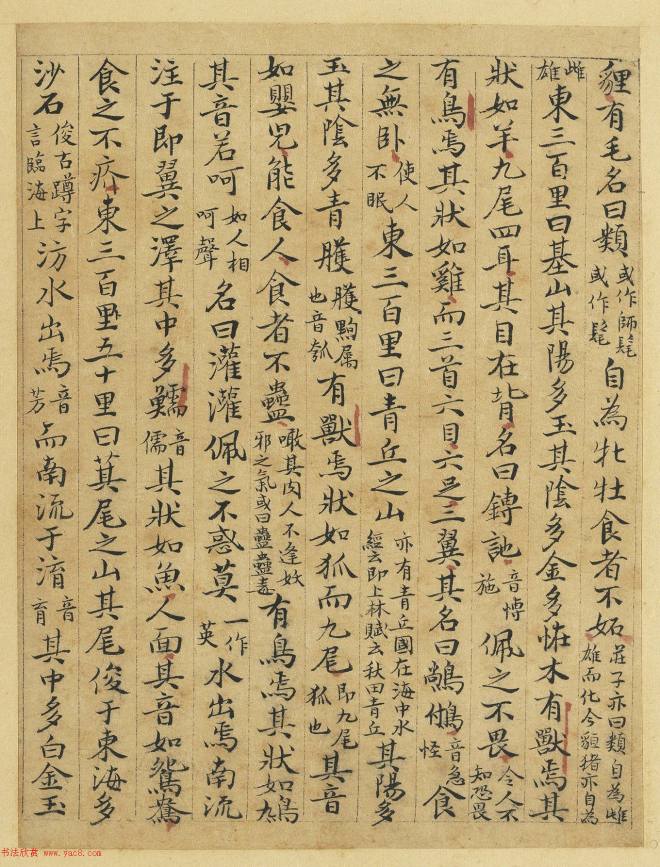 貍有毛名曰類或作師髦或作髦自為牝牡食者不妬莊子亦曰類自為雌雄而化今貆猪亦自為
雌雄東三百里曰基山其陽多玉其陰多金多恠木有獸焉其
狀如羊九尾四耳其目在背名曰鏄訑音愽施佩之不畏令人不知恐畏
有鳥焉其狀如雞而三首六目六足三翼其名曰音急恠食
之無卧使人不眠東三百里曰青丘之山亦有青丘國在海中水經云即上林賦云秋田青丘其陽多
玉其陰多青䨼䨼黝属也音瓠有獸焉狀如狐而九尾即九尾狐也其音
如嬰兒能食人食者不蠱噉其肉人不逢妖邪之氣或曰蠱蠱毒有鳥焉其狀如鳩
其音若呵如人相呵聲名曰灌灌佩之不惑莫一作英水出焉南流
注于即翼之澤其中多鱬音儒其狀如魚人面其音如鴛鴦
食之不疥東三百里五十里曰萁尾之山其尾俊于東海多
沙石俊古蹲字言臨海上汸水出焉音芳而南流于淯音育其中多白金玉
书法欣赏 www.yac8.com